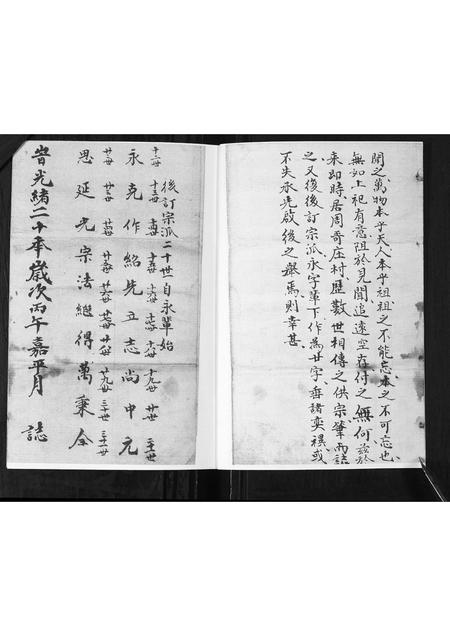 聞之萬物本乎天人本乎祖祖之不能忘本之不可忘也
無如上祀有意阻於見聞追遠空存付之無何茲於
來即時居周奇庄村歷數世相傳之供宗筆而誌
之又後後訂宗派永字輩下作為廿字垂諸奕禩或
不失承先啟後之舉焉則幸甚
後訂宗派二十世自永輩始
十二世 十三世 十四世 十五世 十六世 十七世 十八世 十九世 廿世 二十一世
永克作紹先立志尚中元
廿二世 廿三世 廿四世 廿五世 廿六世 廿七世 廿八世 廿九世 三十世 三十一世
思延光宗法繼得萬秉全
光緒二十年歲次丙午嘉平月 誌